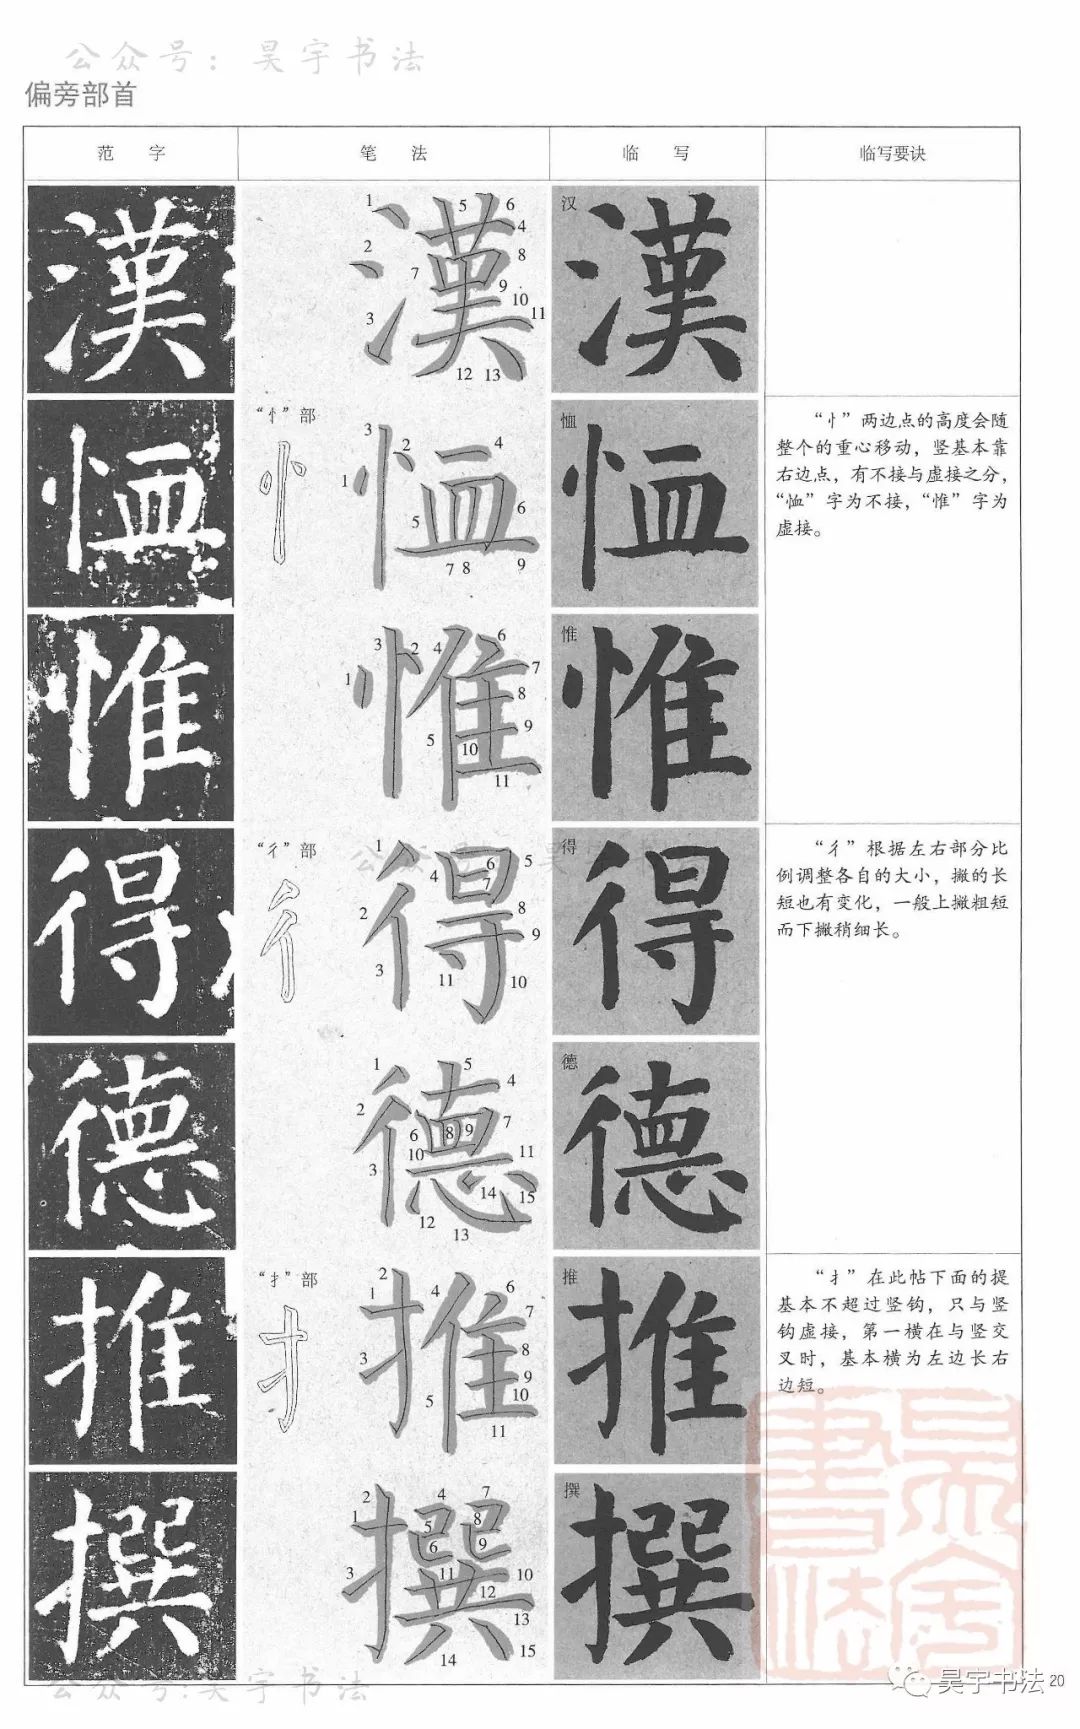 公众号：昊宇书法
偏旁部首
范 字 笔 法 临 写 临写要诀
漢 1 2 3 4 5 6 7 8 9 10 11 12 13 漢 汉
恤 “忄”部 1 2 3 4 5 6 7 8 9 恤 恤
“忄”两边点的高度会随
整个的重心移动，竖基本靠
右边点，有不接与虚接之分，
“恤”字为不接，“惟”字为
虚接。
惟 1 2 3 4 5 6 7 8 9 10 11 惟 惟
得 “彳”部 1 2 3 4 5 6 7 8 9 10 11 得 得
“彳”根据左右部分比
例调整各自的大小，撇的长
短也有变化，一般上撇粗短
而下撇稍细长。
德 1 2 3 4 5 6 7 8 9 10 11 12 13 14 15 德 德
推 “扌”部 1 2 3 4 5 6 7 8 9 10 11 推 推
“扌”在此帖下面的提
基本不超过竖钩，只与竖
钩虚接，第一横在与竖交
叉时，基本横为左边长右
边短。
撰 1 2 3 4 5 6 7 8 9 10 11 12 13 14 15 撰 撰
昊宇書法
公众号:昊宇书法
昊宇书法 20